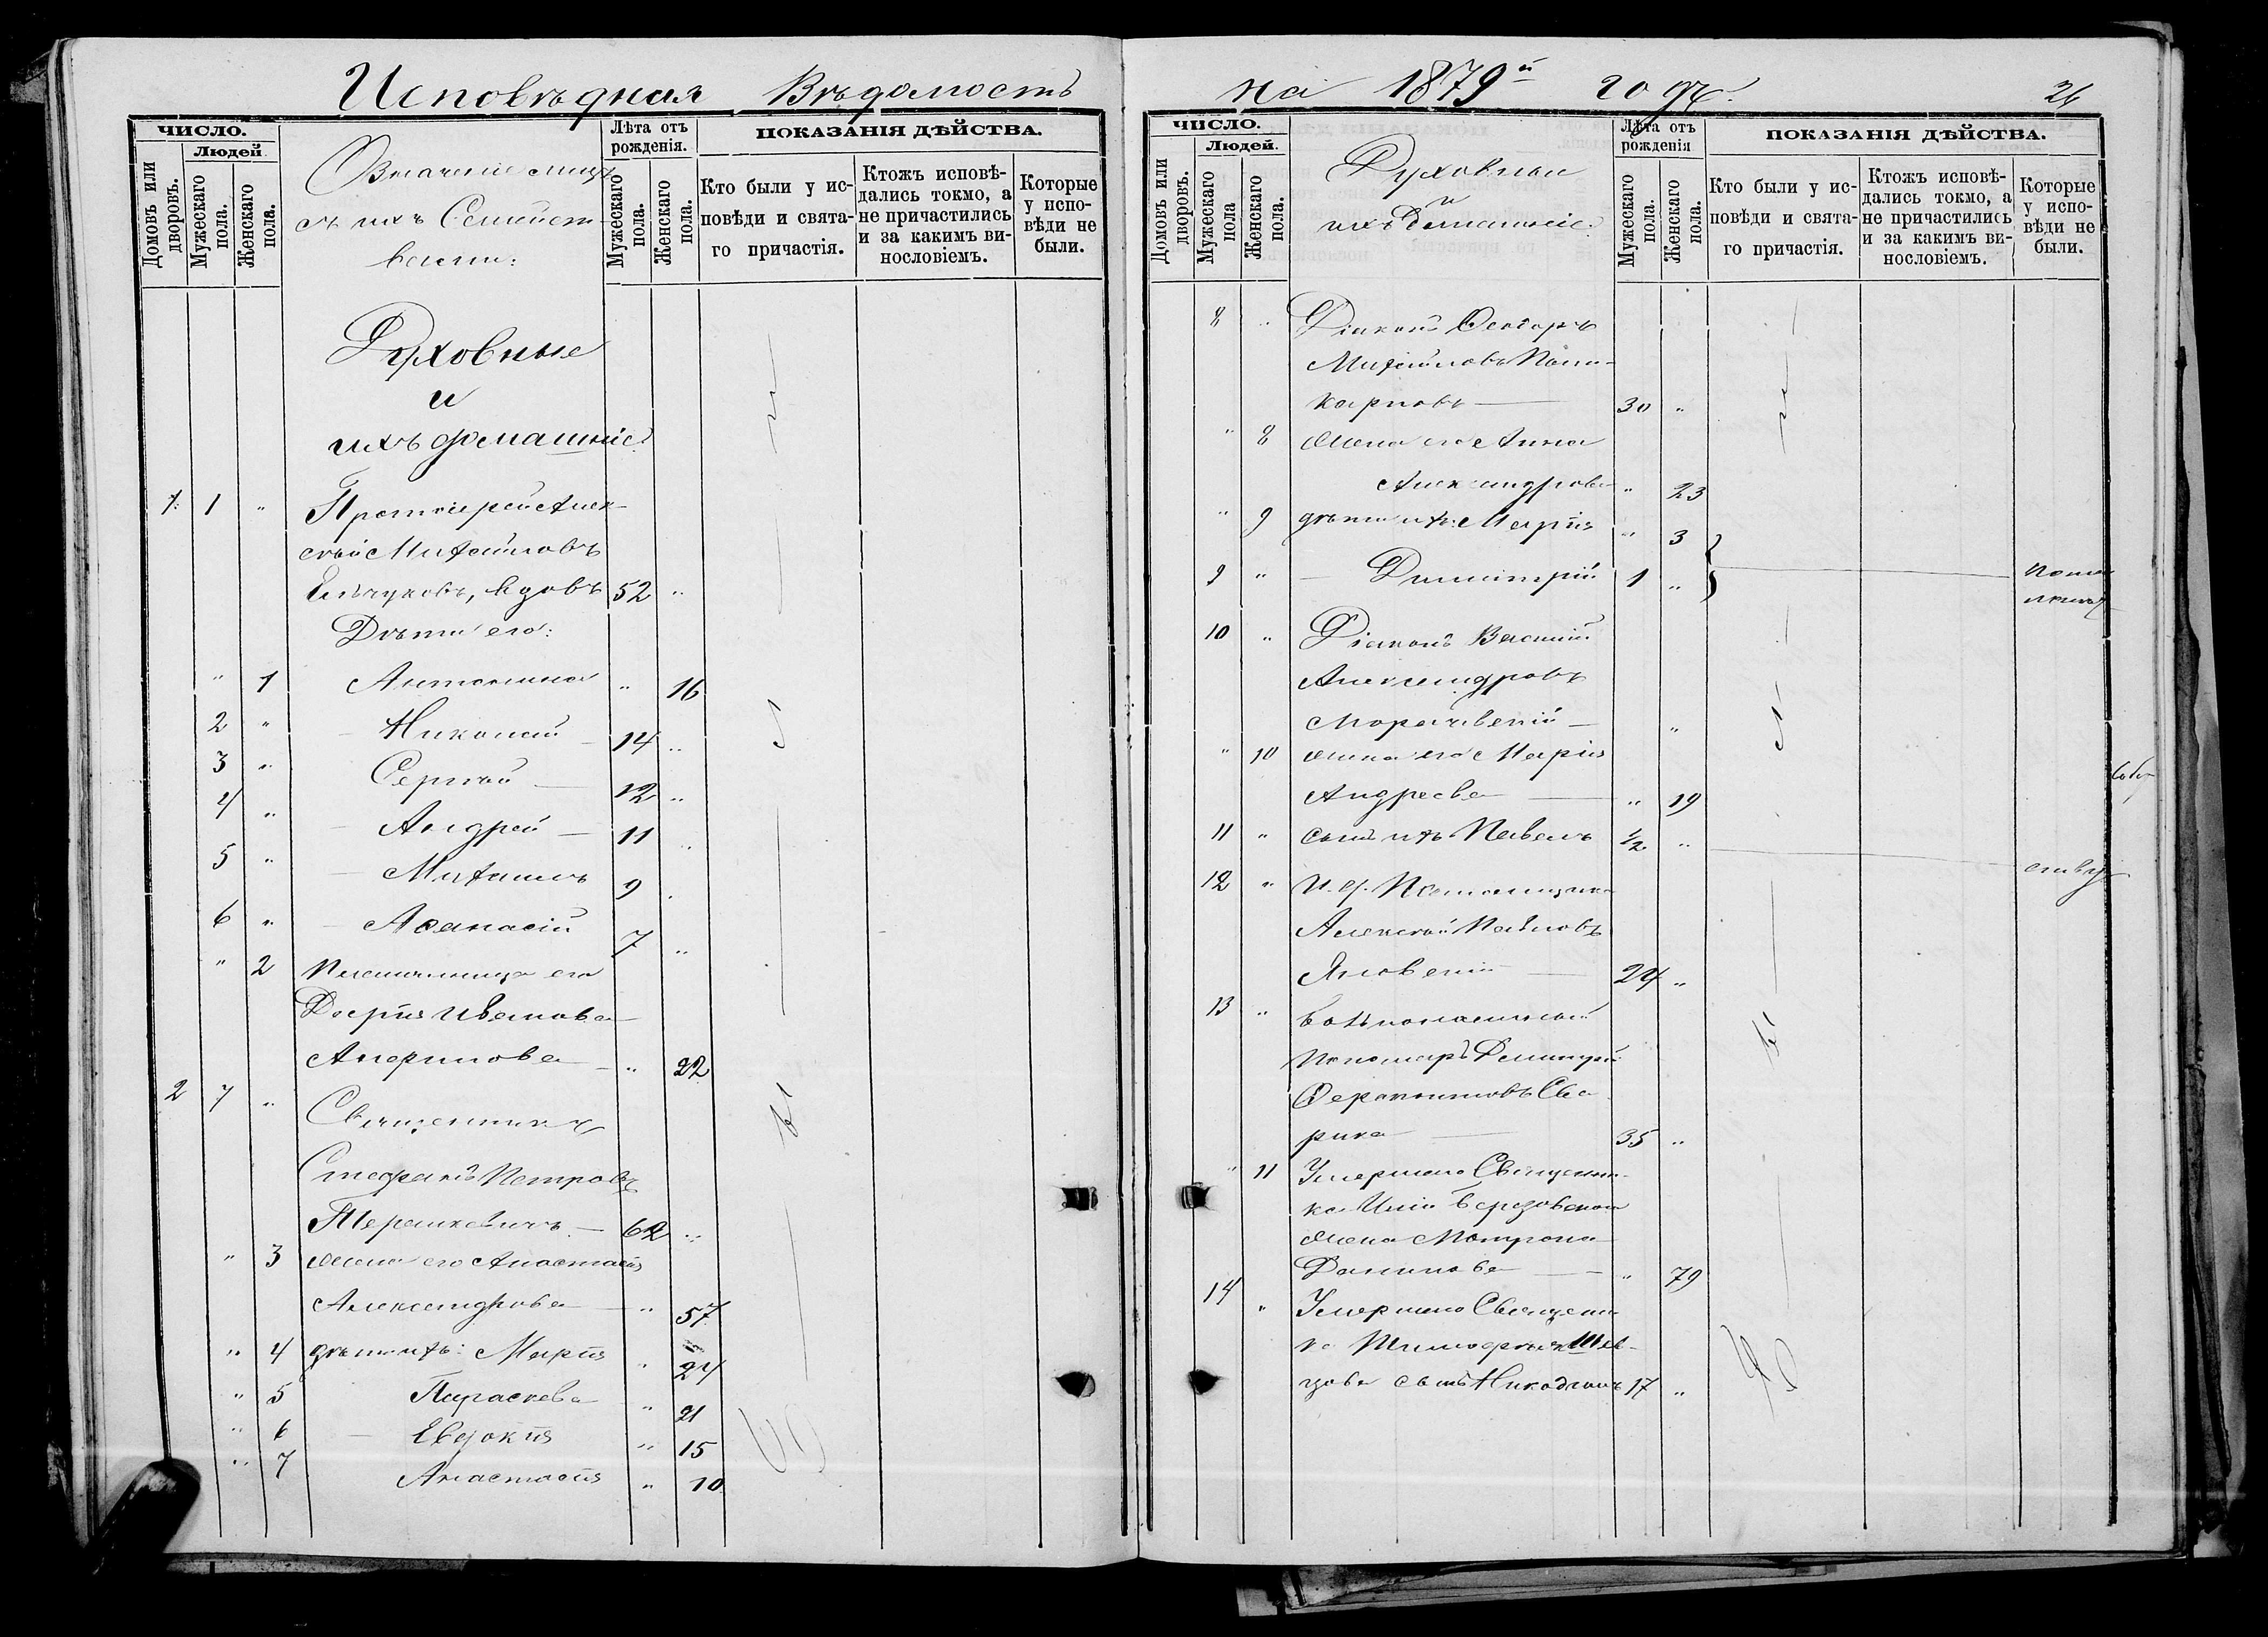 Исповѣдная Вѣдомость
ЧИСЛО.
Людей.
Домовъ или дворовъ.
Мужескаго пола.
Женскаго пола.
съ ихъ Семейст-
вами:
Лѣта отъ рожденія.
Мужескаго пола.
Женскаго пола.
ПОКАЗАНІЯ ДѢЙСТВА.
Кто были у ис-
повѣди и свята-
го причастія.
Ктожъ исповѣ-
дались токмо, а
не причастились
и за какимъ ви-
нословіемъ.
Которые
у испо-
вѣди не
были.
Духовные
и
ихъ домашніе
1. 1 " Протоіерей Алек-
сѣй Михайловъ
вдовъ 52 "
Дѣти его:
" 1 Антонина " 16
2 " Николай 14 "
3 " Сергѣй 12 "
4 " Андрей 11 "
5 " Михаилъ 9 "
6 " Аѳанасій 7 "
" 2 Племянница его
Дарія Иванова
" 22
2 7 " Священникъ
Стефанъ Петровъ
62 "
" 3 жена его Анастасія
Александрова " 57
" 4 дѣти ихъ: Марія " 24
" 5 Параскева " 21
" 6 Евдокія " 15
" 7 Анастасія " 10
на 1879й годъ.
26
ЧИСЛО.
Людей.
Домовъ или дворовъ.
Мужескаго пола
Женскаго пола.
Духовные
и
ихъ домашніе:
Лѣта отъ рожденія
Мужескаго пола.
Женскаго пола.
ПОКАЗАНІЯ ДѢЙСТВА.
Кто были у ис-
повѣди и свята-
го причастія.
Ктожъ исповѣ-
дались токмо, а
не причастились
и за какимъ ви-
нословіемъ.
Которые
у испо-
вѣди не
были.
8 " Діаконъ Ѳеодоръ
Михайловъ Поли-
карповъ 30 "
" 8 жена его Анна
Александрова " 23
" 9 дѣти ихъ: Марія " 3
9 " Димитрій 1 "
10 " Діаконъ Василій
Александровъ
"
" 10 жена его Марія
Андреева " 19
11 " сынъ ихъ Павелъ ½ "
12 " И. д. Псаломщика
Алексѣй Павловъ
24 "
13 "
Пономарь Димитрій
35 "
" 11 Умершаго Священни-
ка Иліи Березовскаго
жена Матрона
Данилова " 79
14 " Умершаго Священни-
ка Тимоѳея Шев-
цова сынъ Никодимъ 17 "